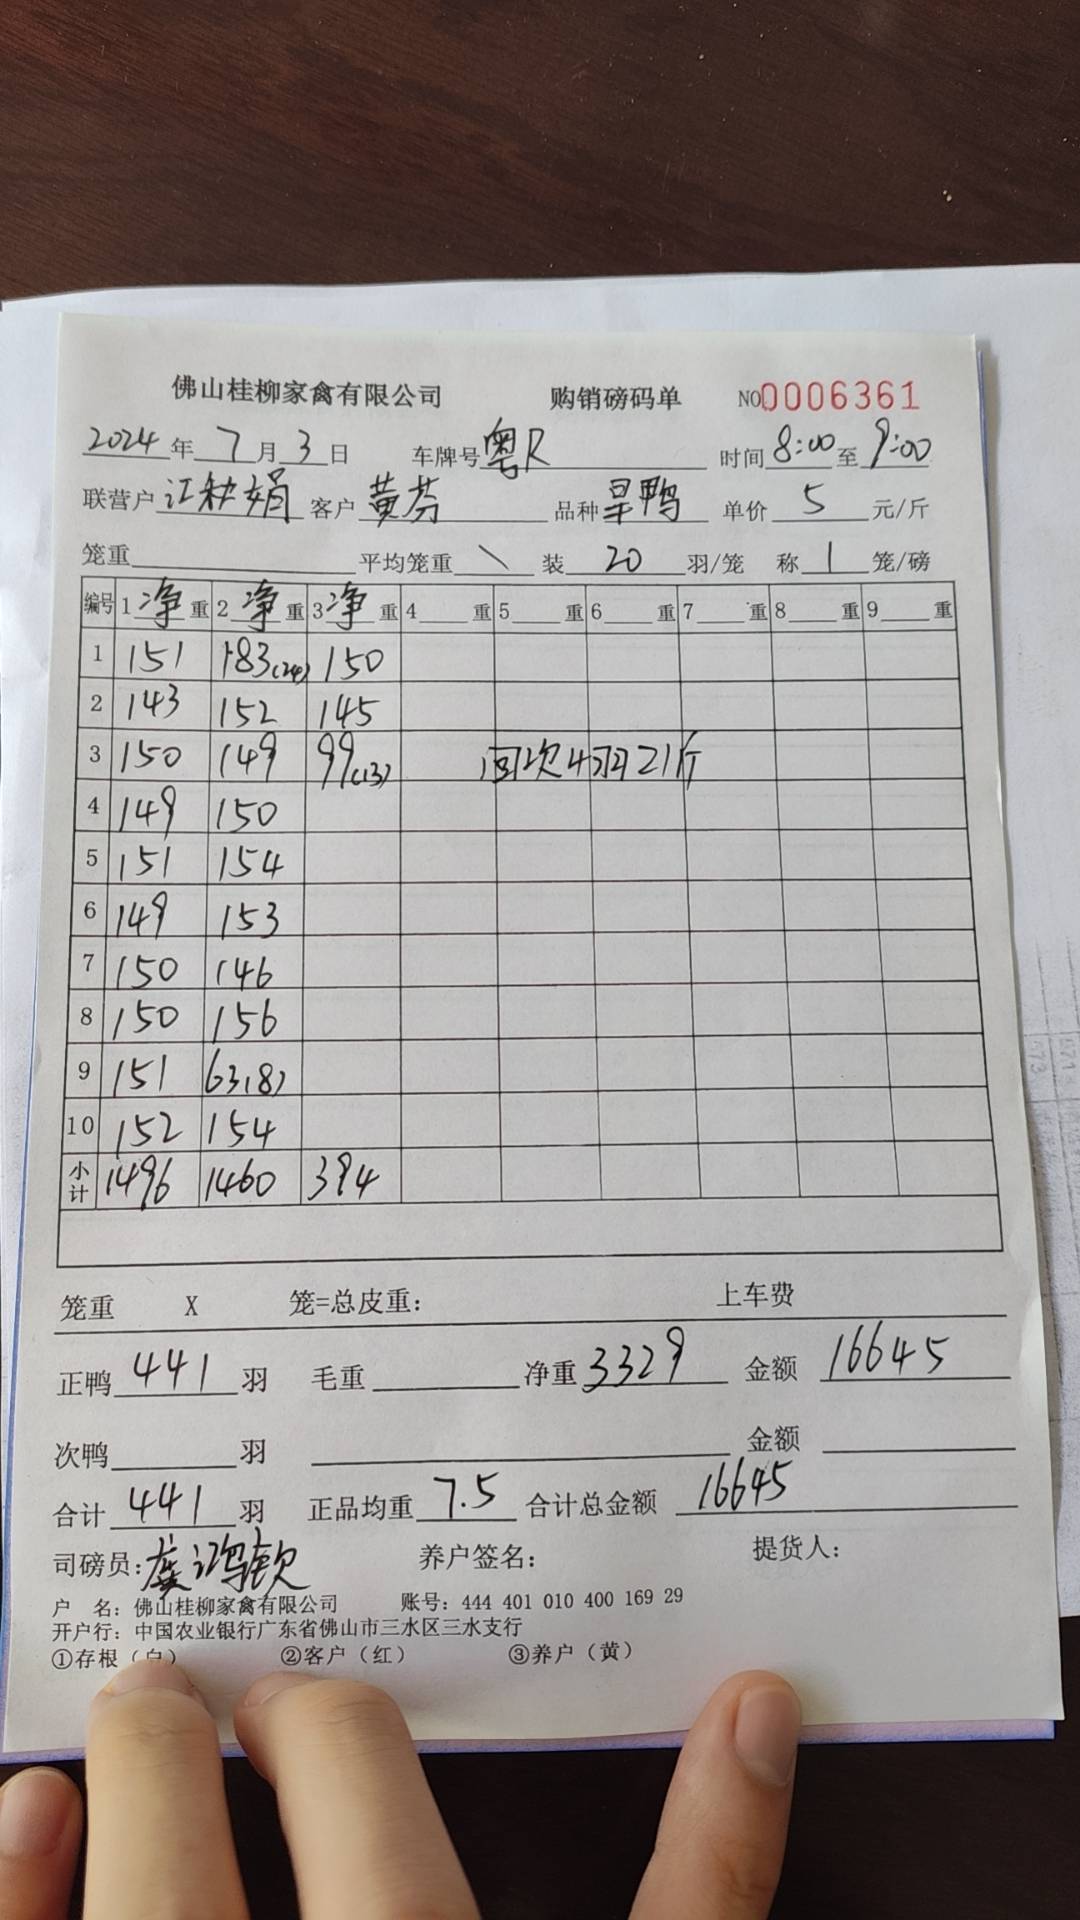 佛山桂柳家禽有限公司 购销磅码单 NO.0006361
2024年 7月 3日 车牌号 粤R 时间 8:00 至 9:00
联营户 江秋娟 客户 黄芬 品种 旱鸭 单价 5 元/斤
笼重 平均笼重 \ 装 20 羽/笼 称 1 笼/磅
编号 1 净 重 2 净 重 3 净 重 4 重 5 重 6 重 7 重 8 重 9 重
1 151 183(24) 150
2 143 152 145
3 150 149 99(13) 回次4羽21斤
4 149 150
5 151 154
6 149 153
7 150 146
8 150 156
9 151 63(8)
10 152 154
小计 1496 1460 394
笼重 X 笼=总皮重: 上车费
正鸭 441 羽 毛重 净重 3329 金额 16645
次鸭 羽 金额
合计 441 羽 正品均重 7.5 合计总金额 16645
司磅员: 龚鸿钦 养户签名: 提货人:
户 名: 佛山桂柳家禽有限公司 账号: 444 401 010 400 169 29
开户行: 中国农业银行广东省佛山市三水区三水支行
①存根（白） ②客户（红） ③养户（黄）